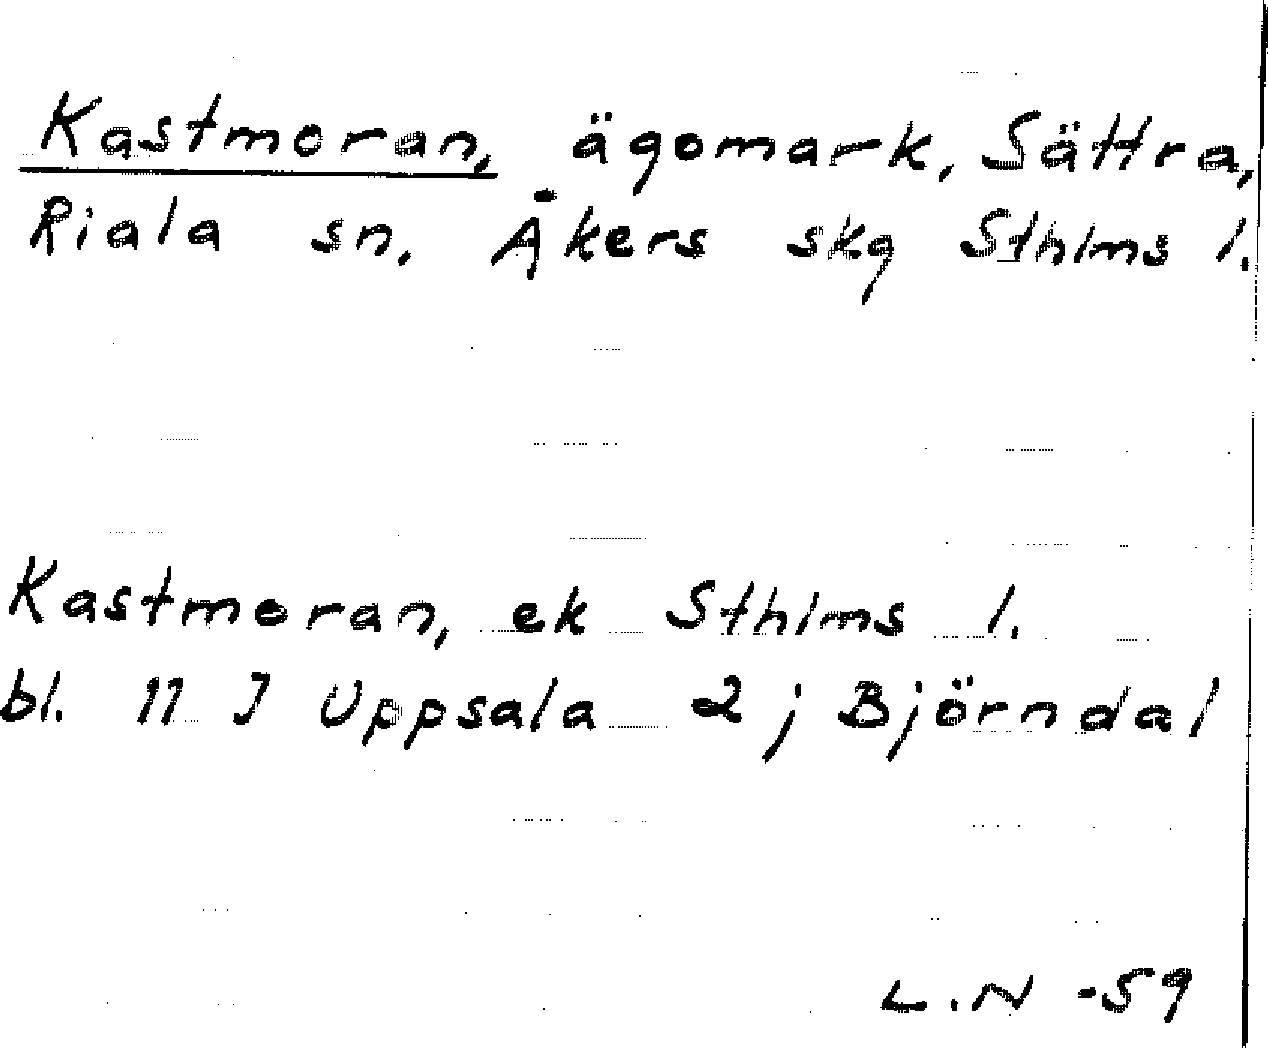 Kastmoran, ägomark, Sättra,
Riala sn. Åkers skg Sthlms l.
Kastmoran, ek Sthlms l.
bl. 11 J Uppsala 2; Björndal
L.N -59